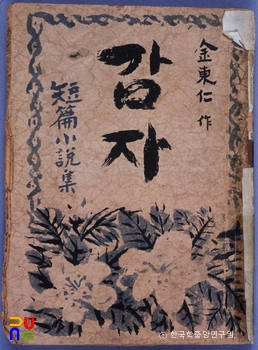 金東仁 作
감자
短篇小說集
© 한국학중앙연구원